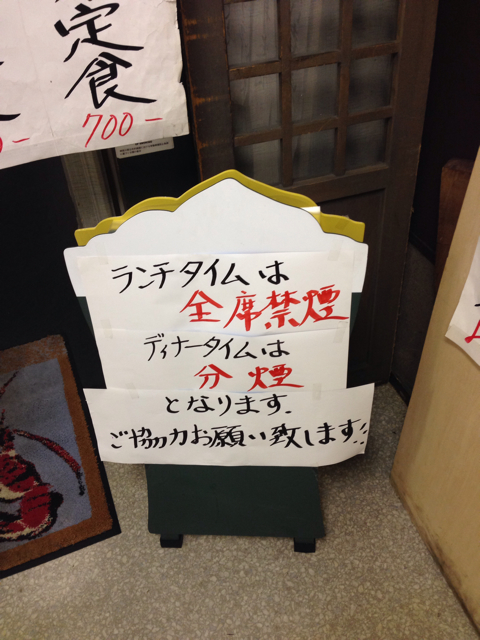 定食
700-
ランチタイムは
全席禁煙
ディナータイムは
分煙
となります.
ご協力お願い致します!!